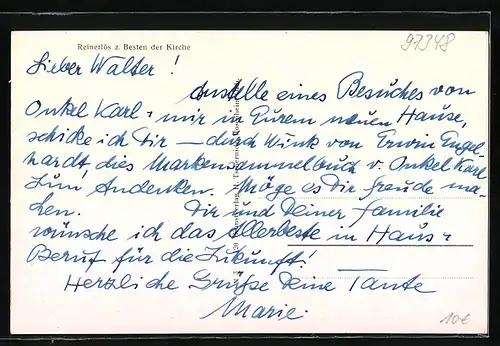 Reinerlös z. Besten der Kirche
97348
Lieber Walter!
Anstelle eines Besuches von
Onkel Karl - mir in Eurem neuen Hause,
schicke ich Dir — durch Wink von Erwin Engel-
hardt, dies Markensammelbuch v. Onkel Karl
zum Andenken. Möge es Dir Freude ma-
chen. Dir und Deiner Familie
wünsche ich das Allerbeste in Haus-
Beruf für die Zukunft!
Herzliche Grüße Deine Tante
Marie.
10€